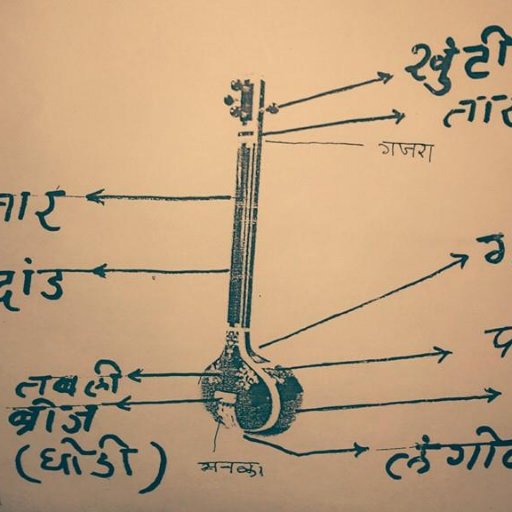 खुंटी
तार
गजरा
तार
दांड
तबली
ब्रीज
(घोडी)
मनका
लंगोट